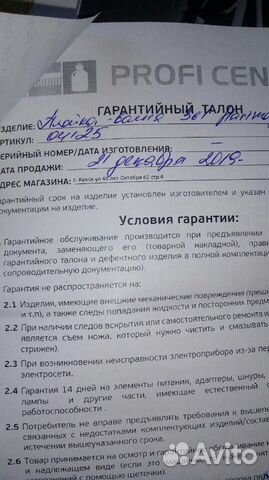 PROFI CEN
ГАРАНТИЙНЫЙ ТАЛОН
ИЗДЕЛИЕ:
АРТИКУЛ: 04125
СЕРИЙНЫЙ НОМЕР/ДАТА ИЗГОТОВЛЕНИЯ:
ДАТА ПРОДАЖИ: 21 декабря 2019
АДРЕС МАГАЗИНА: г. Канск ул 40 лет Октября 62 стр 4
Гарантийный срок на изделие установлен изготовителем и указан
документации на изделие.
Условия гарантии:
Гарантийное обслуживание производится при предъявлении
документа, заменяющего его (товарной накладной), прав
гарантийного талона и дефектного изделия в полной комплектации
сопроводительную документацию).
Гарантия не распространяется на:
2.1 Изделия, имеющие внешние механические повреждения (трещ
и т.п), а также следы попадания жидкости и посторонних предм
2.2 При наличии следов вскрытия или самостоятельного ремонта и
является съем ножа, который нужно чистить и смазывать
стрижек).
2.3 При возникновении неисправности электроприбора из-за пер
электросети.
2.4 Гарантия 14 дней на элементы питания, адаптеры, шнуры,
лампы и другие части, имеющие естественный
работоспособности .
2.5 Потребитель не вправе предъявлять требования к вышеп
связанных с недостатками комплектующих изделий/состав
истечении вышеуказанного срока.
2.6 Товар принимается на осмотр и гарантийное обслуживание
и надлежащем виде (если это
с помощью щеточки).
Avito